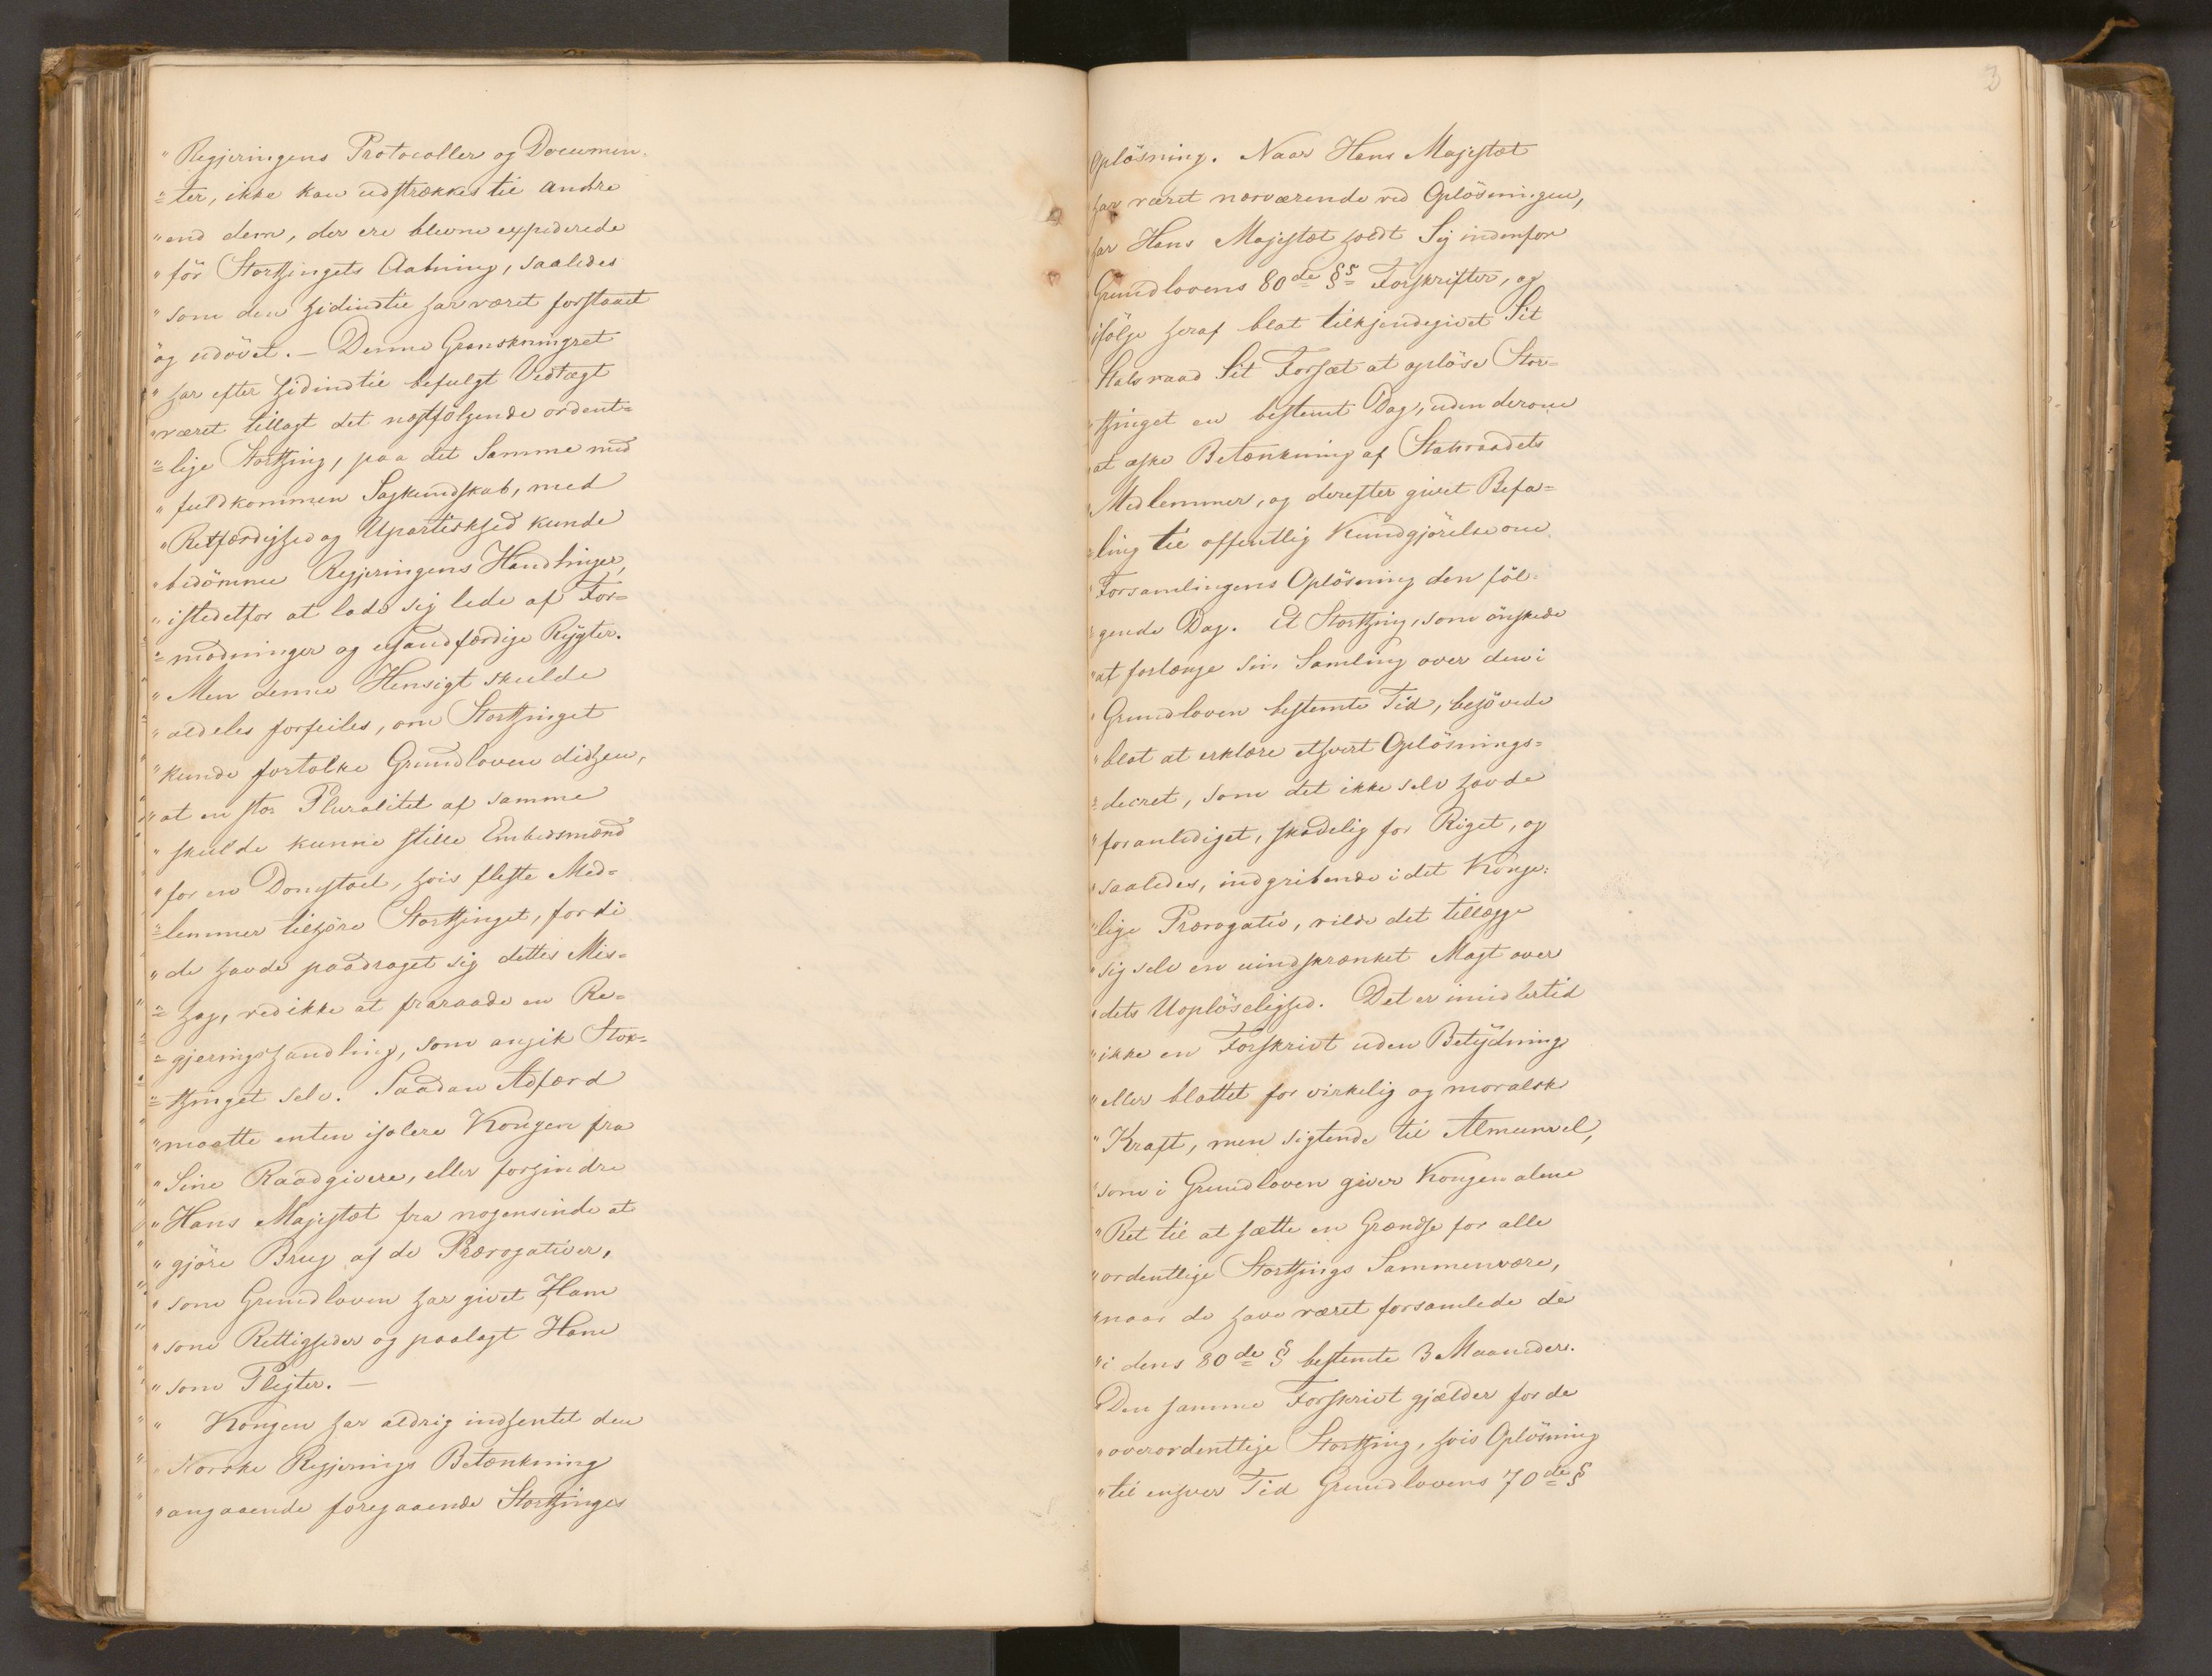 "Regjeringens Protocoller og Documen-
"=ter, ikke kan udstrækkes til andre
"end dem, der ere blevne expederede
"för Storthingets Aabning, saaledes
"som den hidindtil har været forstaaet
"og udövet. — Denne Granskningsret
"har efter hidindtil befulgt Vedtægt
"været tillagt det næstfölgende ordent=
"=lige Storthing, paa det Samme med
"fuldkommen Sagkundskab, med
"Retfærdighed og Upartiskhed kunde
"bedömme Regjeringens Handlinger,
"istedetfor at lade sig lede af For=
"=modninger og usandfærdige Rygter.
"Men denne Hensigt skulde
"aldeles forfeiles, om Storthinget
"kunde fortolke Grundloven didhen,
"at en stor Pluralitet af samme
"skulde kunne stille Embedsmænd
"for en Domstoel, hvis fleste Med=
"=lemmer tilhöre Storthinget, fordi
"de havde paadraget sig dettes Mis=
"=hag, ved ikke at fraraade en Re=
"=gjeringshandling, som angik Stor=
"=thinget selv. Saadan Adfærd
"maatte enten isolere Kongen fra
"Sine Raadgivere, eller forhindre
"Hans Majestæt fra nogensinde at
"gjöre Brug af de Prærogativer,
"som Grundloven har givet Ham
"som Rettigheder og paalagt Ham
"som Pligter. —
" Kongen har aldrig indhentet den
"Norske Regjerings Betænkning
"angaaende foregaaende Storthinges
3
Oplösning. Naar Hans Majestæt
har været nærværende ved Oplösningen,
har Hans Majestæt holdt Sig indenfor
Grundlovens 80de §s Forskrifter, og
ifölge heraf blot tilkjendegivet Sit
Statsraad Sit Forsæt at oplöse Stor=
"thinget en bestemt Dag, uden derom
"at æske Betænkning af Statsraadets
"Medlemmer, og derefter givet Befa=
"=ling til offentlig Kundgjörelse om
"Forsamlingens Oplösning den föl-
"gende Dag. Et Storthing, som önskede
"at forlænge sin Samling over den i
"Grundloven bestemte Tid, behövede
"blot at erklære ethvert Oplösnings=
"=decret, som det ikke selv havde
"foranlediget, skadelig for Riget, og
"saaledes, indgribende i det Konge=
"lige Prærogativ, vilde det tillægge
"sig selv en uindskrænket Magt over
"dets Uoplöselighed. Det er imidlertid
"ikke en Forskrivt uden Betydning
"eller blottet for virkelig og moralsk
"Kraft, men sigtende til Almeenvel,
"som i Grundloven giver Kongen alene
"Ret til at sætte en Grændse for alle
"ordentlige Storthings Sammenvære,
"naar de have været forsamlede de
"i dens 80de § bestemte 3 Maaneder.
"Den samme Forskrivt gjælder for de
"overordentlige Storthing, hvis Oplösning
"til enhver Tid Grundlovens 70de §